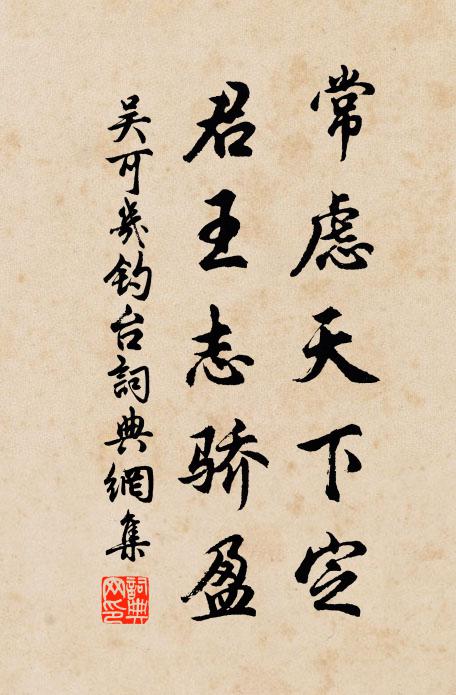 常慮天下定
君王志骄盈
吴可幾钓台詞典網集
詞典網印